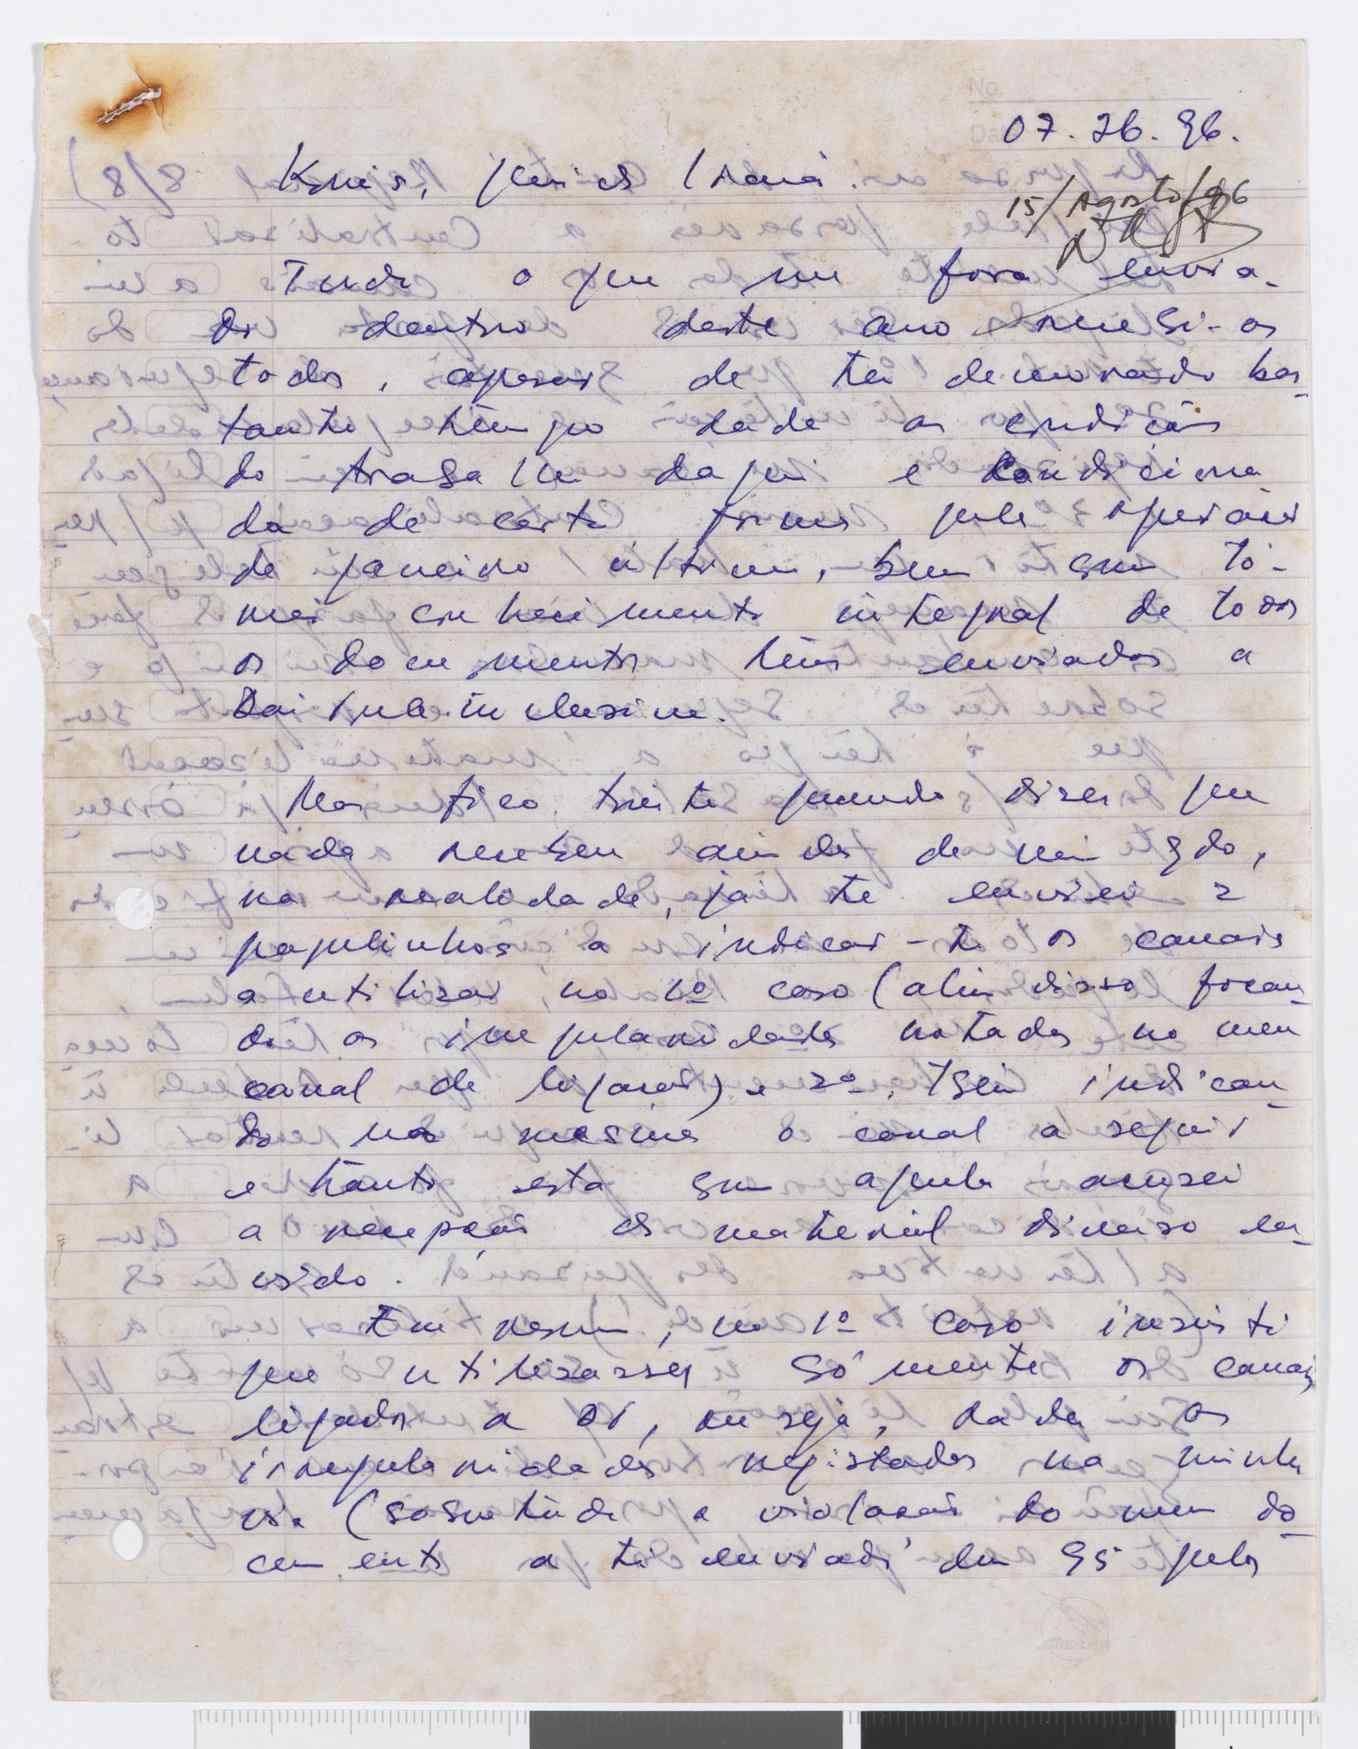 07.26.96.
Konis, querida Irmã.
15/Agosto/96
Tudo o que me fora envia-
do dentro deste ano recebi-os
todos, apesar de ter demorado bas-
tante tempo dada as condições
do trabalho daqui e condiciona
da de certa forma pela operação
de janeiro último, bem como to-
mei conhecimento integral de todos
os documentos teus enviados a
inclusive.
Mas fico triste quando dizes que
nada recebeu ainda de mim qdo,
na realidade, já te enviei 2
papelinhos a indicar-te os canais
a utilizar no 1º caso (além disso focan-
do as irregularidades notadas no meu
canal de ligação) e 2º, tbém indican-
do nos mesmos o canal a seguir
e tanto esta como aquela acusei
a recepção do material diverso en-
viado.
Em resumo, no 1º caso insisti
que utilizasses sómente os canais
ligados a ti, ou seja, dada as
irregularidades registadas na minha
via (sobretudo a violação do meu do-
cumento a ti enviado em 95 pelos